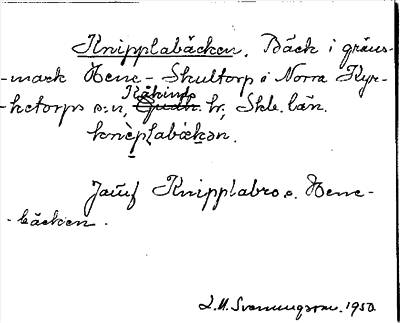 Knipplabäcken. Bäck i gräns-
-mark Hene - Skultorp i Norra Kyr-
Kåkinds
-ketorps s:n, hr, Skbg. län.
knèplabäkən.
Jämf Knipplabro o. Hene-
-bäcken.
L. M. Svenungsson. 1950.